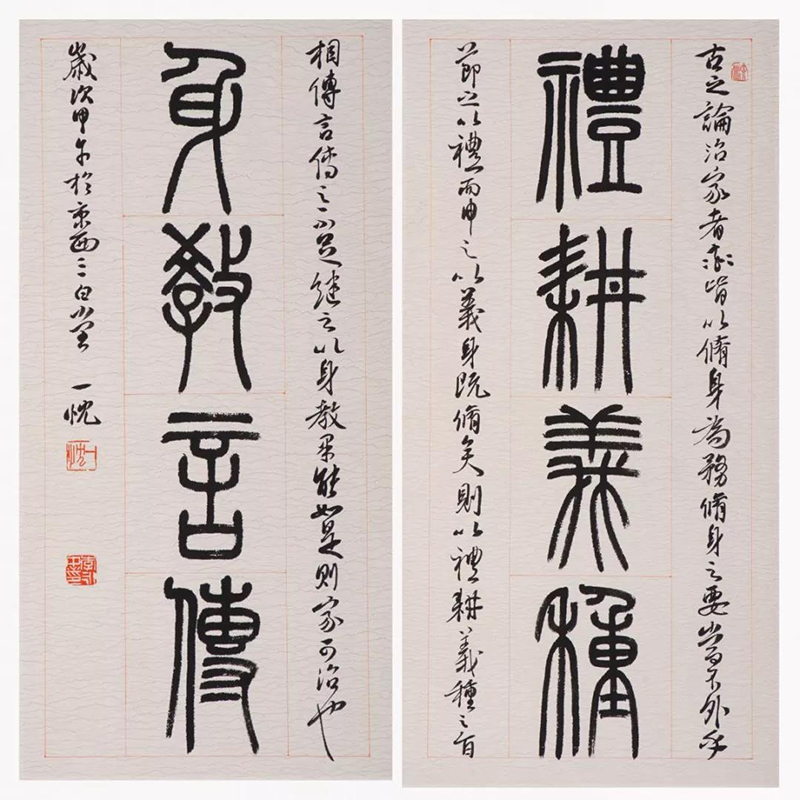 古之論治家者流皆以脩身為務脩身之要當不外乎
禮耕義種
節之以禮而申之以義身既脩矣則以禮耕義種之旨
相傳言傳之不足繼之以身教果能如是則家可治也
身教言傳
歲次甲午於京西三白堂 一忱